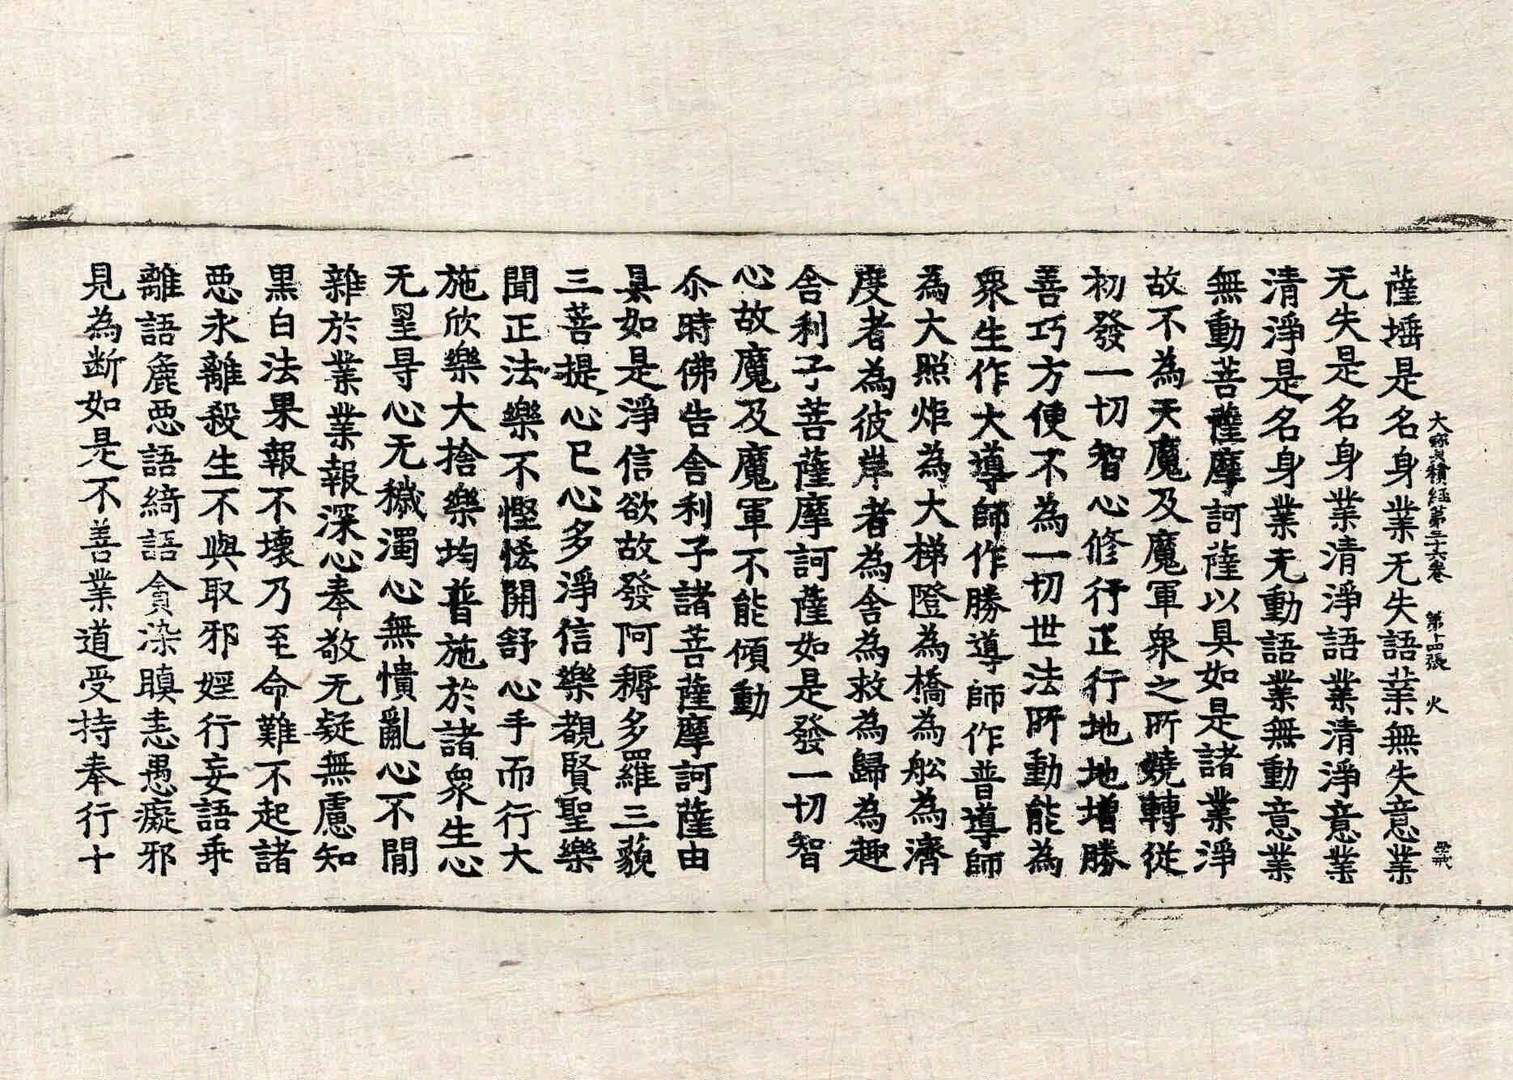 大寳積經第三十六卷 第十四張 火
薩埵是名身業无失語業無失意業
无失是名身業清淨語業清淨意業
清淨是名身業无動語業無動意業
無動菩薩摩訶薩以具如是諸業淨
故不為天魔及魔軍衆之所嬈轉從
初發一切智心修行正行地地增勝
善巧方便不為一切世法所動能為
衆生作大導師作勝導師作普導師
為大照炬為大梯隥為橋為舩為濟
度者為彼岸者為舍為救為歸為趣
舍利子菩薩摩訶薩如是發一切智
心故魔及魔軍不能傾動
尒時佛告舍利子諸菩薩摩訶薩由
具如是淨信欲故發阿耨多羅三藐
三菩提心已心多淨信樂覩賢聖樂
聞正法樂不慳悋開舒心手而行大
施欣樂大捨樂均普施於諸衆生心
无罣㝵心无穢濁心無憒亂心不閒
雜於業業報深心奉敬无疑無慮知
黑白法果報不壞乃至命難不起諸
惡永離殺生不與取邪婬行妄語乖
離語麁惡語綺語貪染瞋恚愚癡邪
見為断如是不善業道受持奉行十